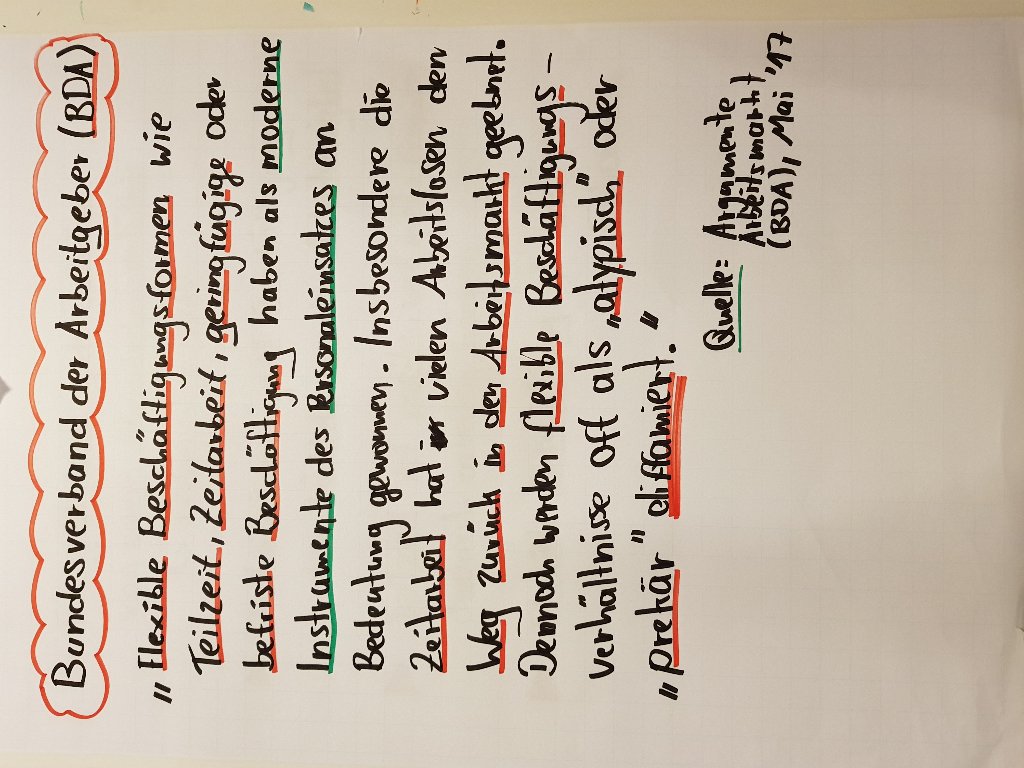 Bundesverband der Arbeitgeber (BDA)
„Flexible Beschäftigungsformen wie
Teilzeit, Zeitarbeit, geringfügige oder
befriste Beschäftigung haben als moderne
Instrumente des Personaleinsatzes an
Bedeutung gewonnen. Insbesondere die
Zeitarbeit hat vielen Arbeitslosen den
Weg zurück in den Arbeitsmarkt geebnet.
Dennoch werden flexible Beschäftigungs-
verhältnisse oft als „atypisch" oder
„prekär" diffamiert."
Quelle: Argumente
Arbeitsmarkt
(BDA), Mai '17